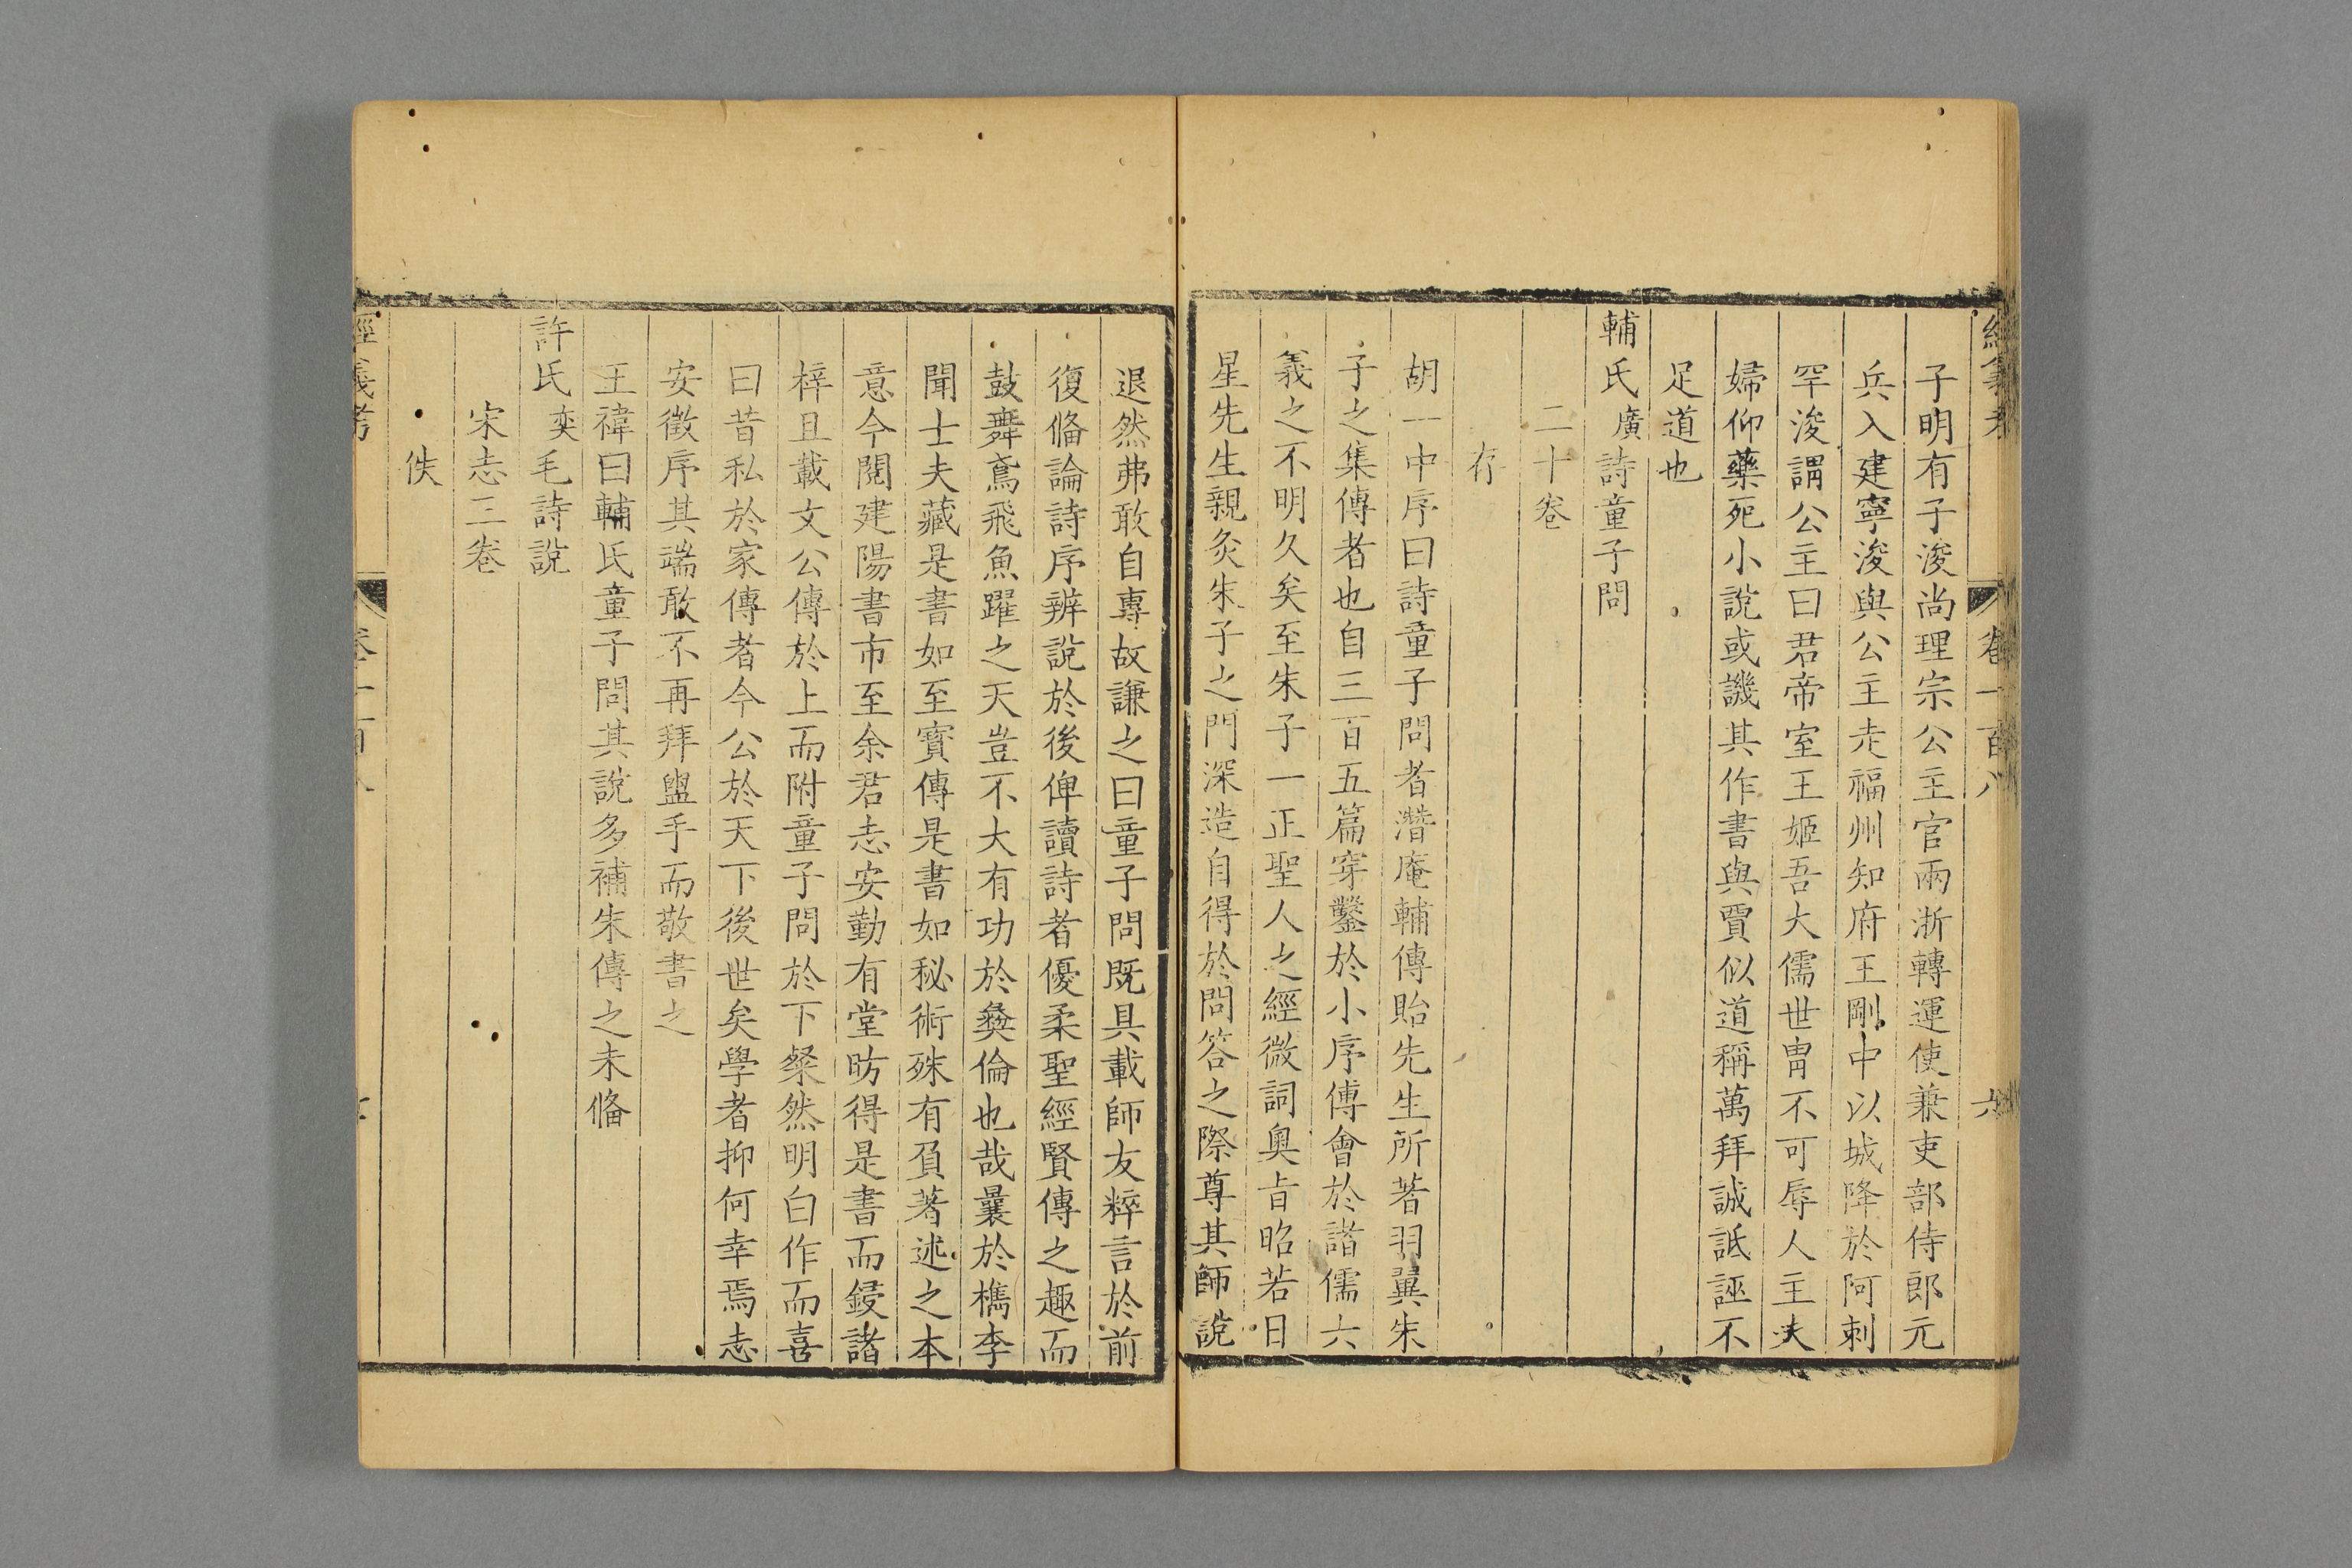 經義考
卷一百八
六
子明有子浚尚理宗公主官兩浙轉運使兼吏部侍郎元
兵入建寧浚與公主走福州知府王剛中以城降於阿剌
罕浚謂公主曰君帝室王姬吾大儒世胄不可辱人主夫
婦仰藥死小說或譏其作書與賈似道稱萬拜誠詆誣不
足道也
輔氏廣詩童子問
二十卷
存
胡一中序曰詩童子問者潛庵輔傳貽先生所著羽翼朱
子之集傳者也自三百五篇穿鑿於小序傅會於諸儒六
義之不明久矣至朱子一正聖人之經微詞奧旨昭若日
星先生親炙朱子之門深造自得於問答之際尊其師說
退然弗敢自專故謙之曰童子問既具載師友粹言於前
復俻論詩序辨說於後俾讀詩者優柔聖經賢傳之趣而
鼓舞鳶飛魚躍之天豈不大有功於彝倫也哉曩於檇李
聞士夫藏是書如至寶傳是書如秘術殊有負著述之本
意今閱建陽書市至余君志安勤有堂昉得是書而鋟諸
梓且載文公傳於上而附童子問於下粲然明白作而喜
曰昔私於家傳者今公於天下後世矣學者抑何幸焉志
安徵序其端敢不再拜盥手而敬書之
王禕曰輔氏童子問其說多補朱傳之未俻
許氏奕毛詩說
宋志三卷
佚
經義考
卷一百八
七